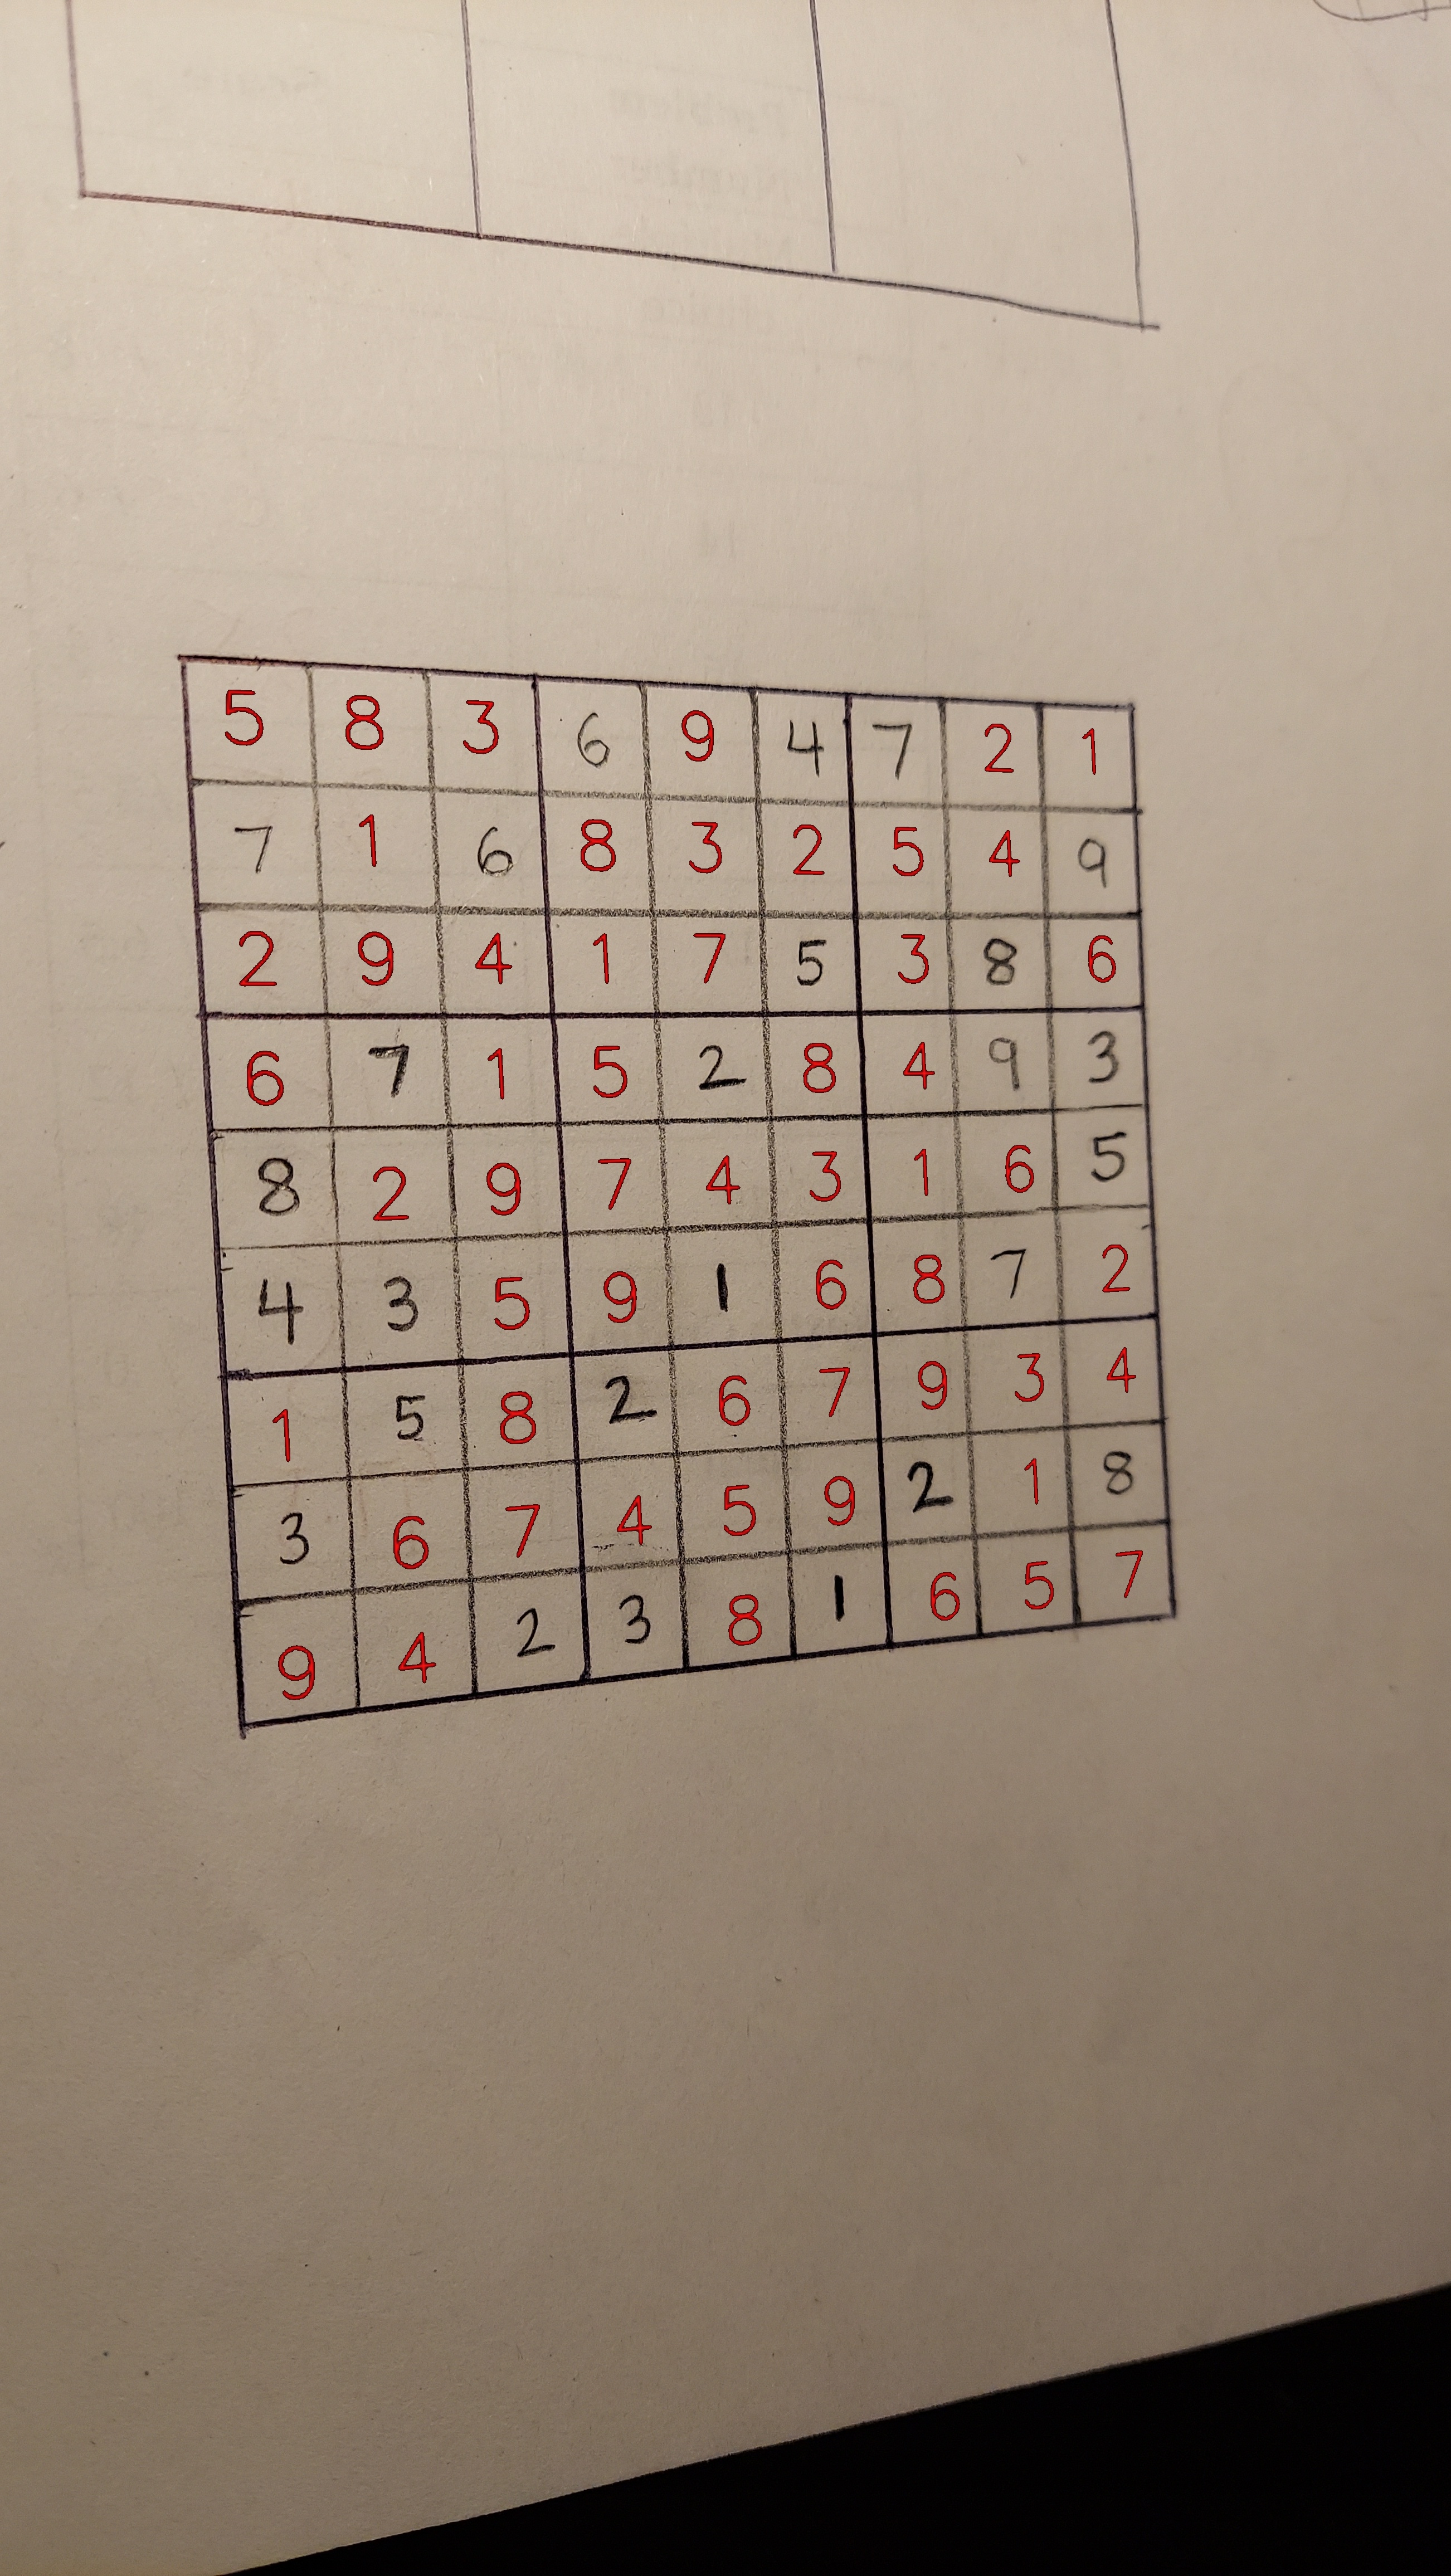 5 8 3 6 9 4 7 2 1
7 1 6 8 3 2 5 4 9
2 9 4 1 7 5 3 8 6
6 7 1 5 2 8 4 9 3
8 2 9 7 4 3 1 6 5
4 3 5 9 1 6 8 7 2
1 5 8 2 6 7 9 3 4
3 6 7 4 5 9 2 1 8
9 4 2 3 8 1 6 5 7